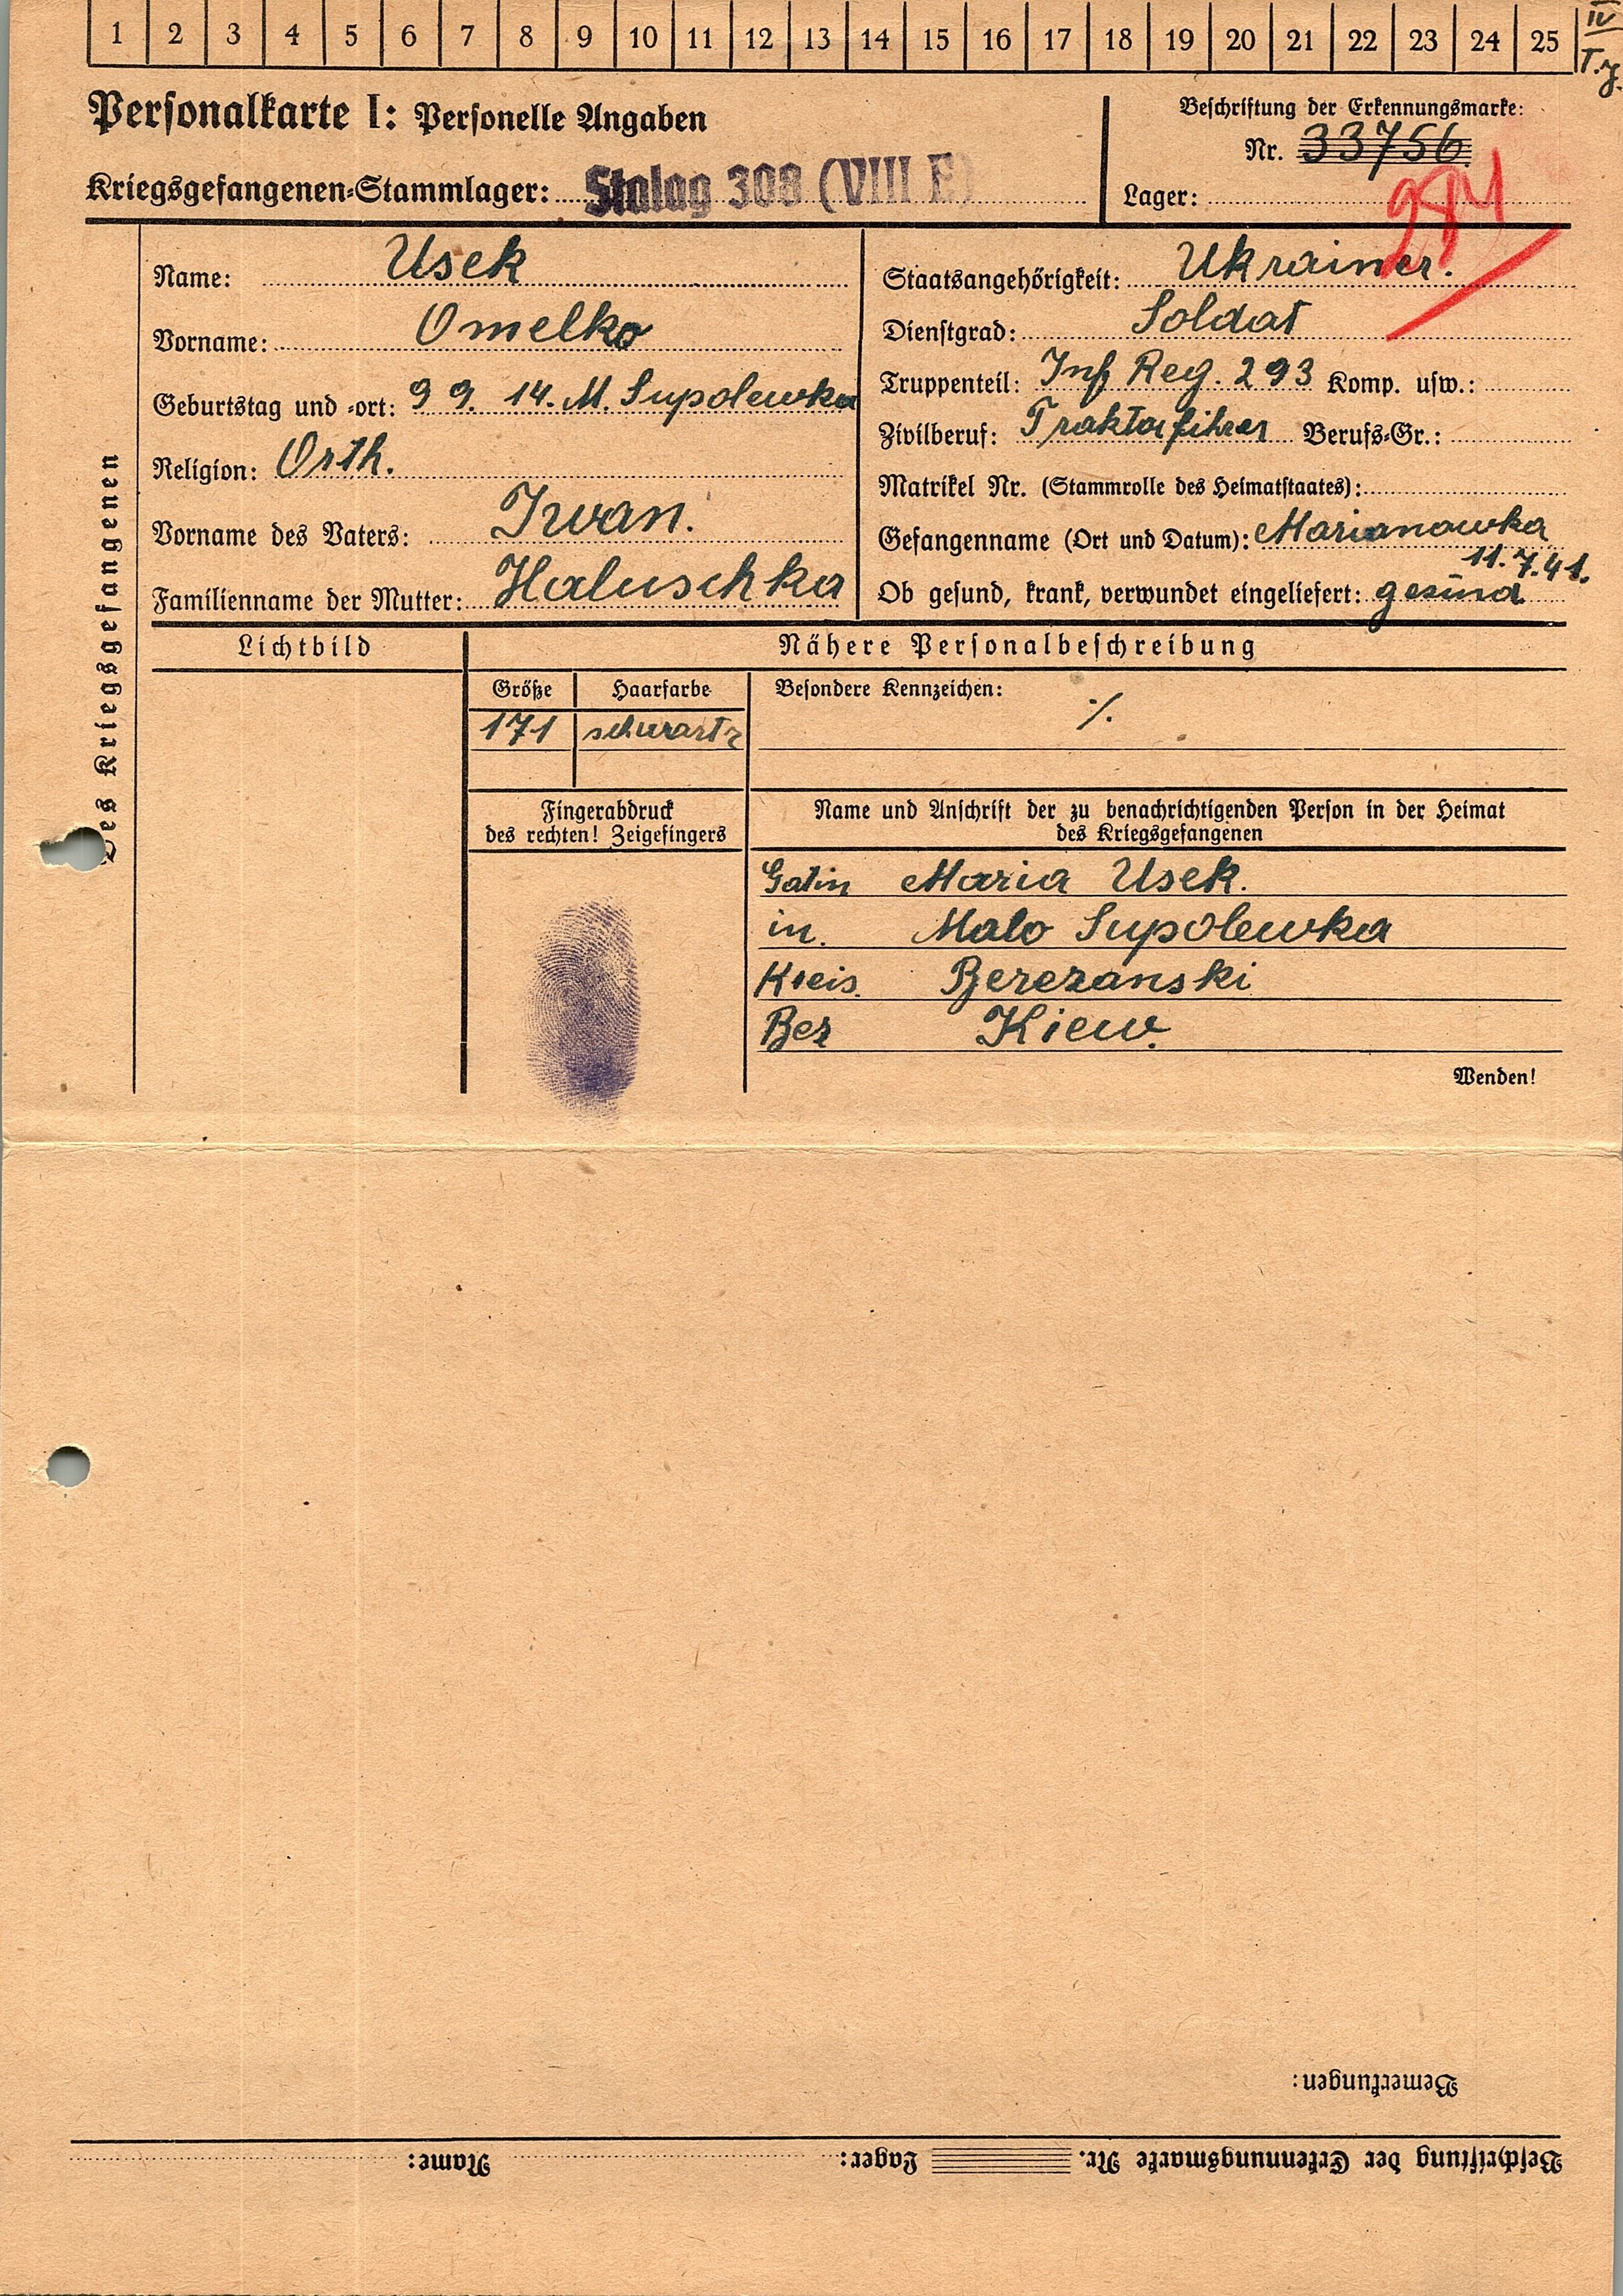 1 2 3 4 5 6 7 8 9 10 11 12 13 14 15 16 17 18 19 20 21 22 23 24 25 IV
T.
Personalkarte I: Personelle Angaben
Kriegsgefangenen-Stammlager: Stalag 308 (VIII E)
Beschriftung der Erkennungsmarke:
Nr. 33756
Lager:
Des Kriegsgefangenen
Name: Usek
Vorname: Omelko
Geburtstag und -ort: 9 9. 14. M. Supolewka
Religion: Orth.
Vorname des Vaters: Iwan.
Familienname der Mutter: Haluschka
Staatsangehörigkeit: Ukrainer.
Dienstgrad: Soldat
Truppenteil: Inf Reg. 293 Komp. usw.:
Zivilberuf: Traktorfihrer Berufs-Gr.:
Matrikel Nr. (Stammrolle des Heimatstaates):
Gefangenname (Ort und Datum): Marianowka
11.7.41.
Ob gesund, krank, verwundet eingeliefert: gesund
Lichtbild
Nähere Personalbeschreibung
Größe Haarfarbe Besondere Kennzeichen: ./.
171 schwartz
Fingerabdruck
des rechten! Zeigefingers
Name und Anschrift der zu benachrichtigenden Person in der Heimat
des Kriegsgefangenen
Gatin Maria Usek.
in. Malo Supolewka
Kreis. Berezanski
Bez Kiew.
Wenden!
Bemerkungen:
Beschriftung der Erkennungsmarke Nr. Lager: Name: